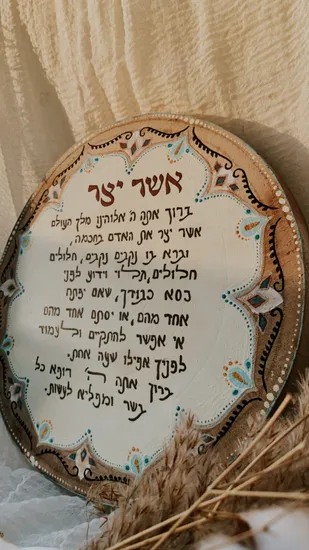 אשר יצר
ברוך אתה ה' אלוהינו מלך העולם
אשר יצר את האדם בחכמה,
וברא בו נקבים נקבים, חלולים
חלולים,
וידוע לפני
כסא כבודך, שאם יפתח
אחד מהם, או יסתם אחד מהם
אי אפשר להתקיים ולעמוד
לפניך אפילו שעה אחת.
ברוך אתה ה' רופא כל
בשר ומפליא לעשות.